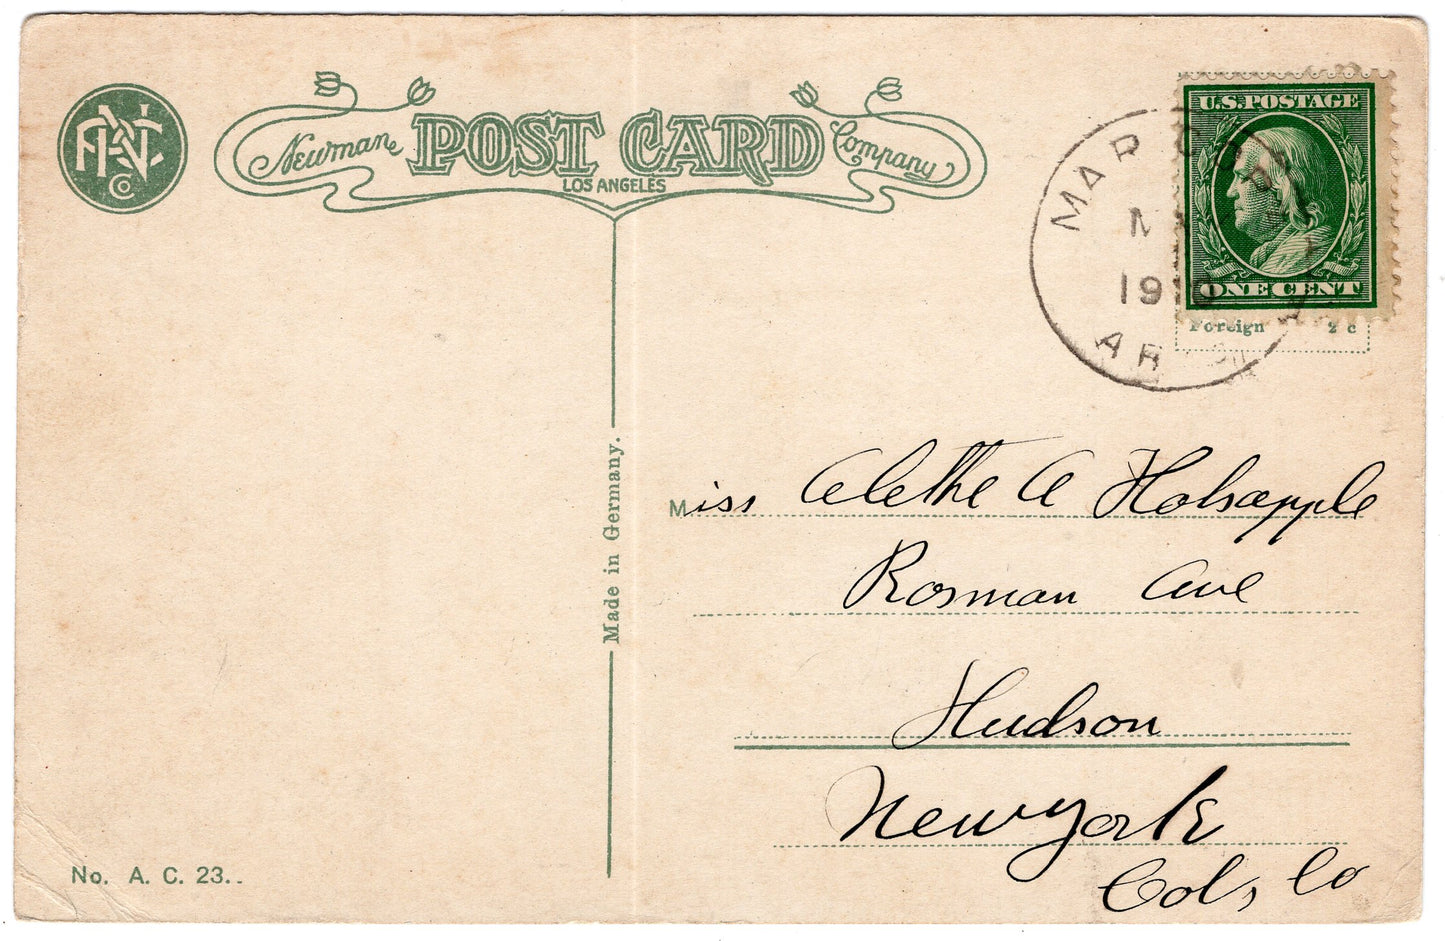 Newman POST CARD Company
LOS ANGELES
U.S. POSTAGE
ONE CENT
MARCO
19
AR
Foreign 2c
Made in Germany.
Miss Alethe A Holsapple
Rosman Ave
Hudson
New York
Col, Co
No. A. C. 23..